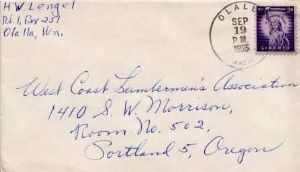 H W Lengel
Rt. 1, Box 257
Olalla, Wn.
OLALLA
SEP
19
P.M.
1955
WASH.
LIBERTY
West Coast Lumbermen's Association
1410 S. W. Morrison,
Room No. 502,
Portland 5, Oregon